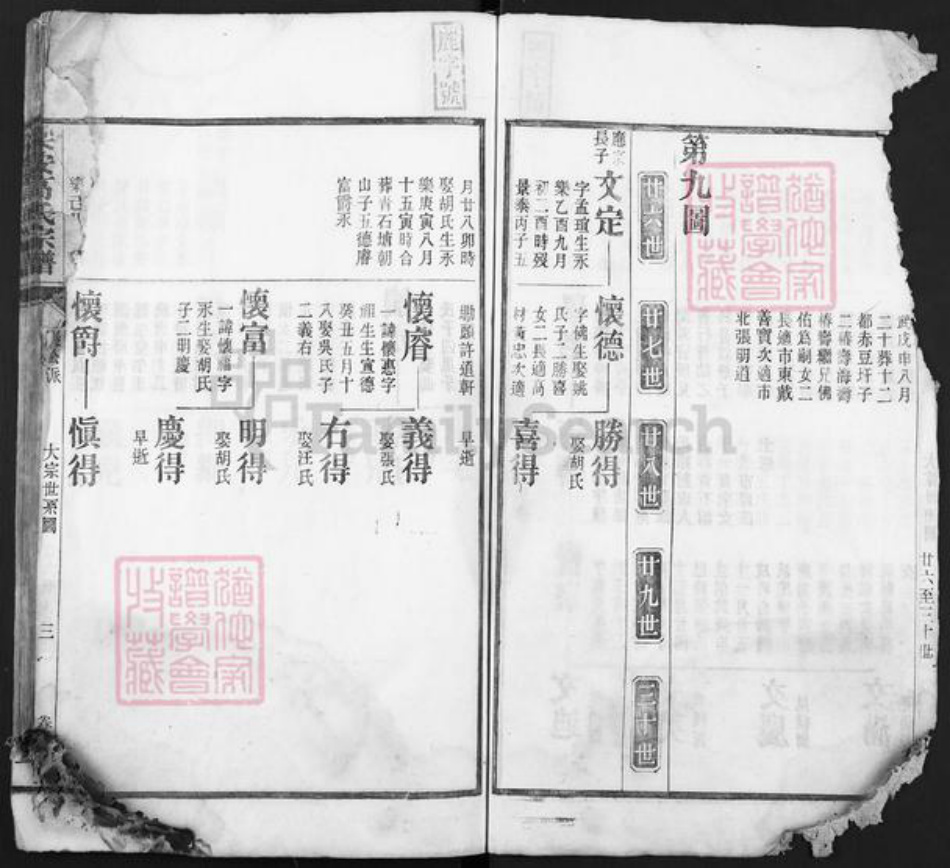 武戊申八月
二十葬十二
都赤豆圩子
二椿壽海壽
椿壽繼兄佛
佑爲嗣女二
長適市東戴
善寶次適市
北張明道
第九圖
廿六世
廿七世
廿八世
廿九世
三十世
長子
文定
字孟瑄生永
樂乙酉九月
初二酉時歿
景泰丙子五
月廿八卯時
娶胡氏生永
樂庚寅八月
十五寅時合
葬青石塘朝
山子五德睿
富爵永
懷德
字佛生娶姚
氏子二勝喜
女二長適高
材黃忠次適
鋤頭許道軒
勝得
娶胡氏
喜得
早逝
懷睿
一諱懷惠字
生生宣德
癸丑五月十
八娶吳氏子
二義右
義得
娶張氏
右得
娶汪氏
懷富
一諱懷福字
永生娶胡氏
子二明慶
明得
娶胡氏
慶得
早逝
懷爵
愼得
氏宗譜
派
大宗世系圖
三
廿六至三十世
鹿字號
猶他家
譜學會
收藏
猶他家
譜學會
收藏
FamilySearch